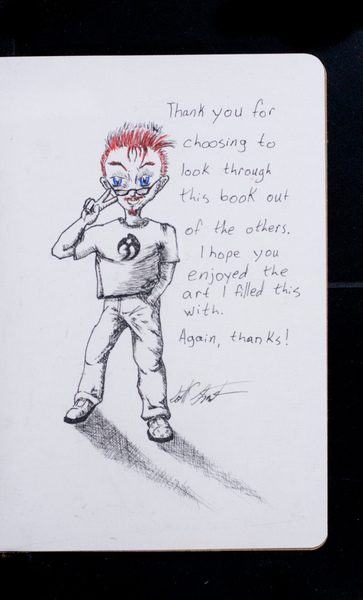 Thank you for
choosing to
look through
this book out
of the others.
I hope you
enjoyed the
art I filled this
with.
Again, thanks!